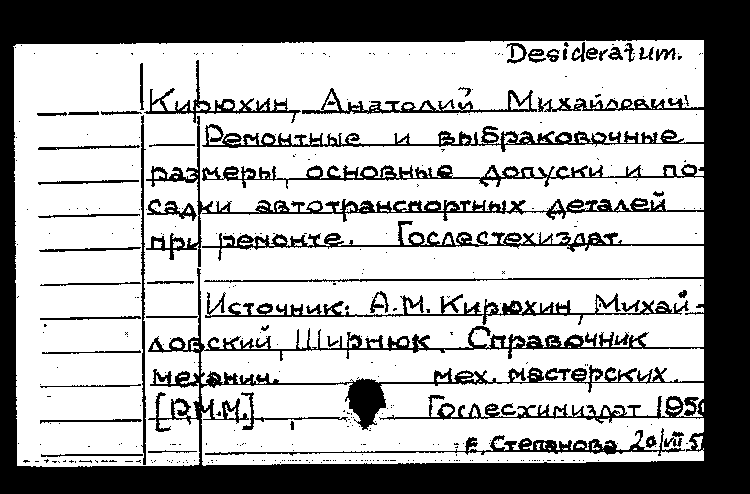 Desideratum.
Кирюхин, Анатолий Михайлович
Ремонтные и выбраковочные
размеры, основные допуски и по-
садки автотранспортных деталей
при ремонте. Гослестехиздат.
Источник: А.М. Кирюхин, Михай-
ловский, Ширнюк. Справочник
механич. мех. мастерских.
[Р.М.М.], Гослесхимиздат 1950
Е. Степанова 20/VII 51